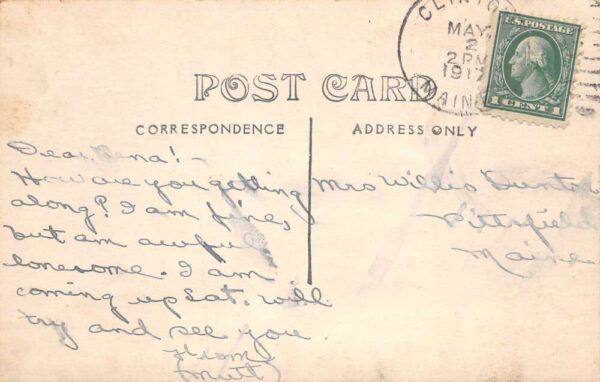 CLINTON
MAY
2
2 PM
1917
MAINE
U.S. POSTAGE
1 CENT 1
POST CARD
CORRESPONDENCE
ADDRESS ONLY
Dear Rena! -
How are you getting
along? I am fine,
but am awful
lonesome. I am
coming up Sat. will
try and see you.
From
Mutt
Mrs Willis
Pittsfield
Maine